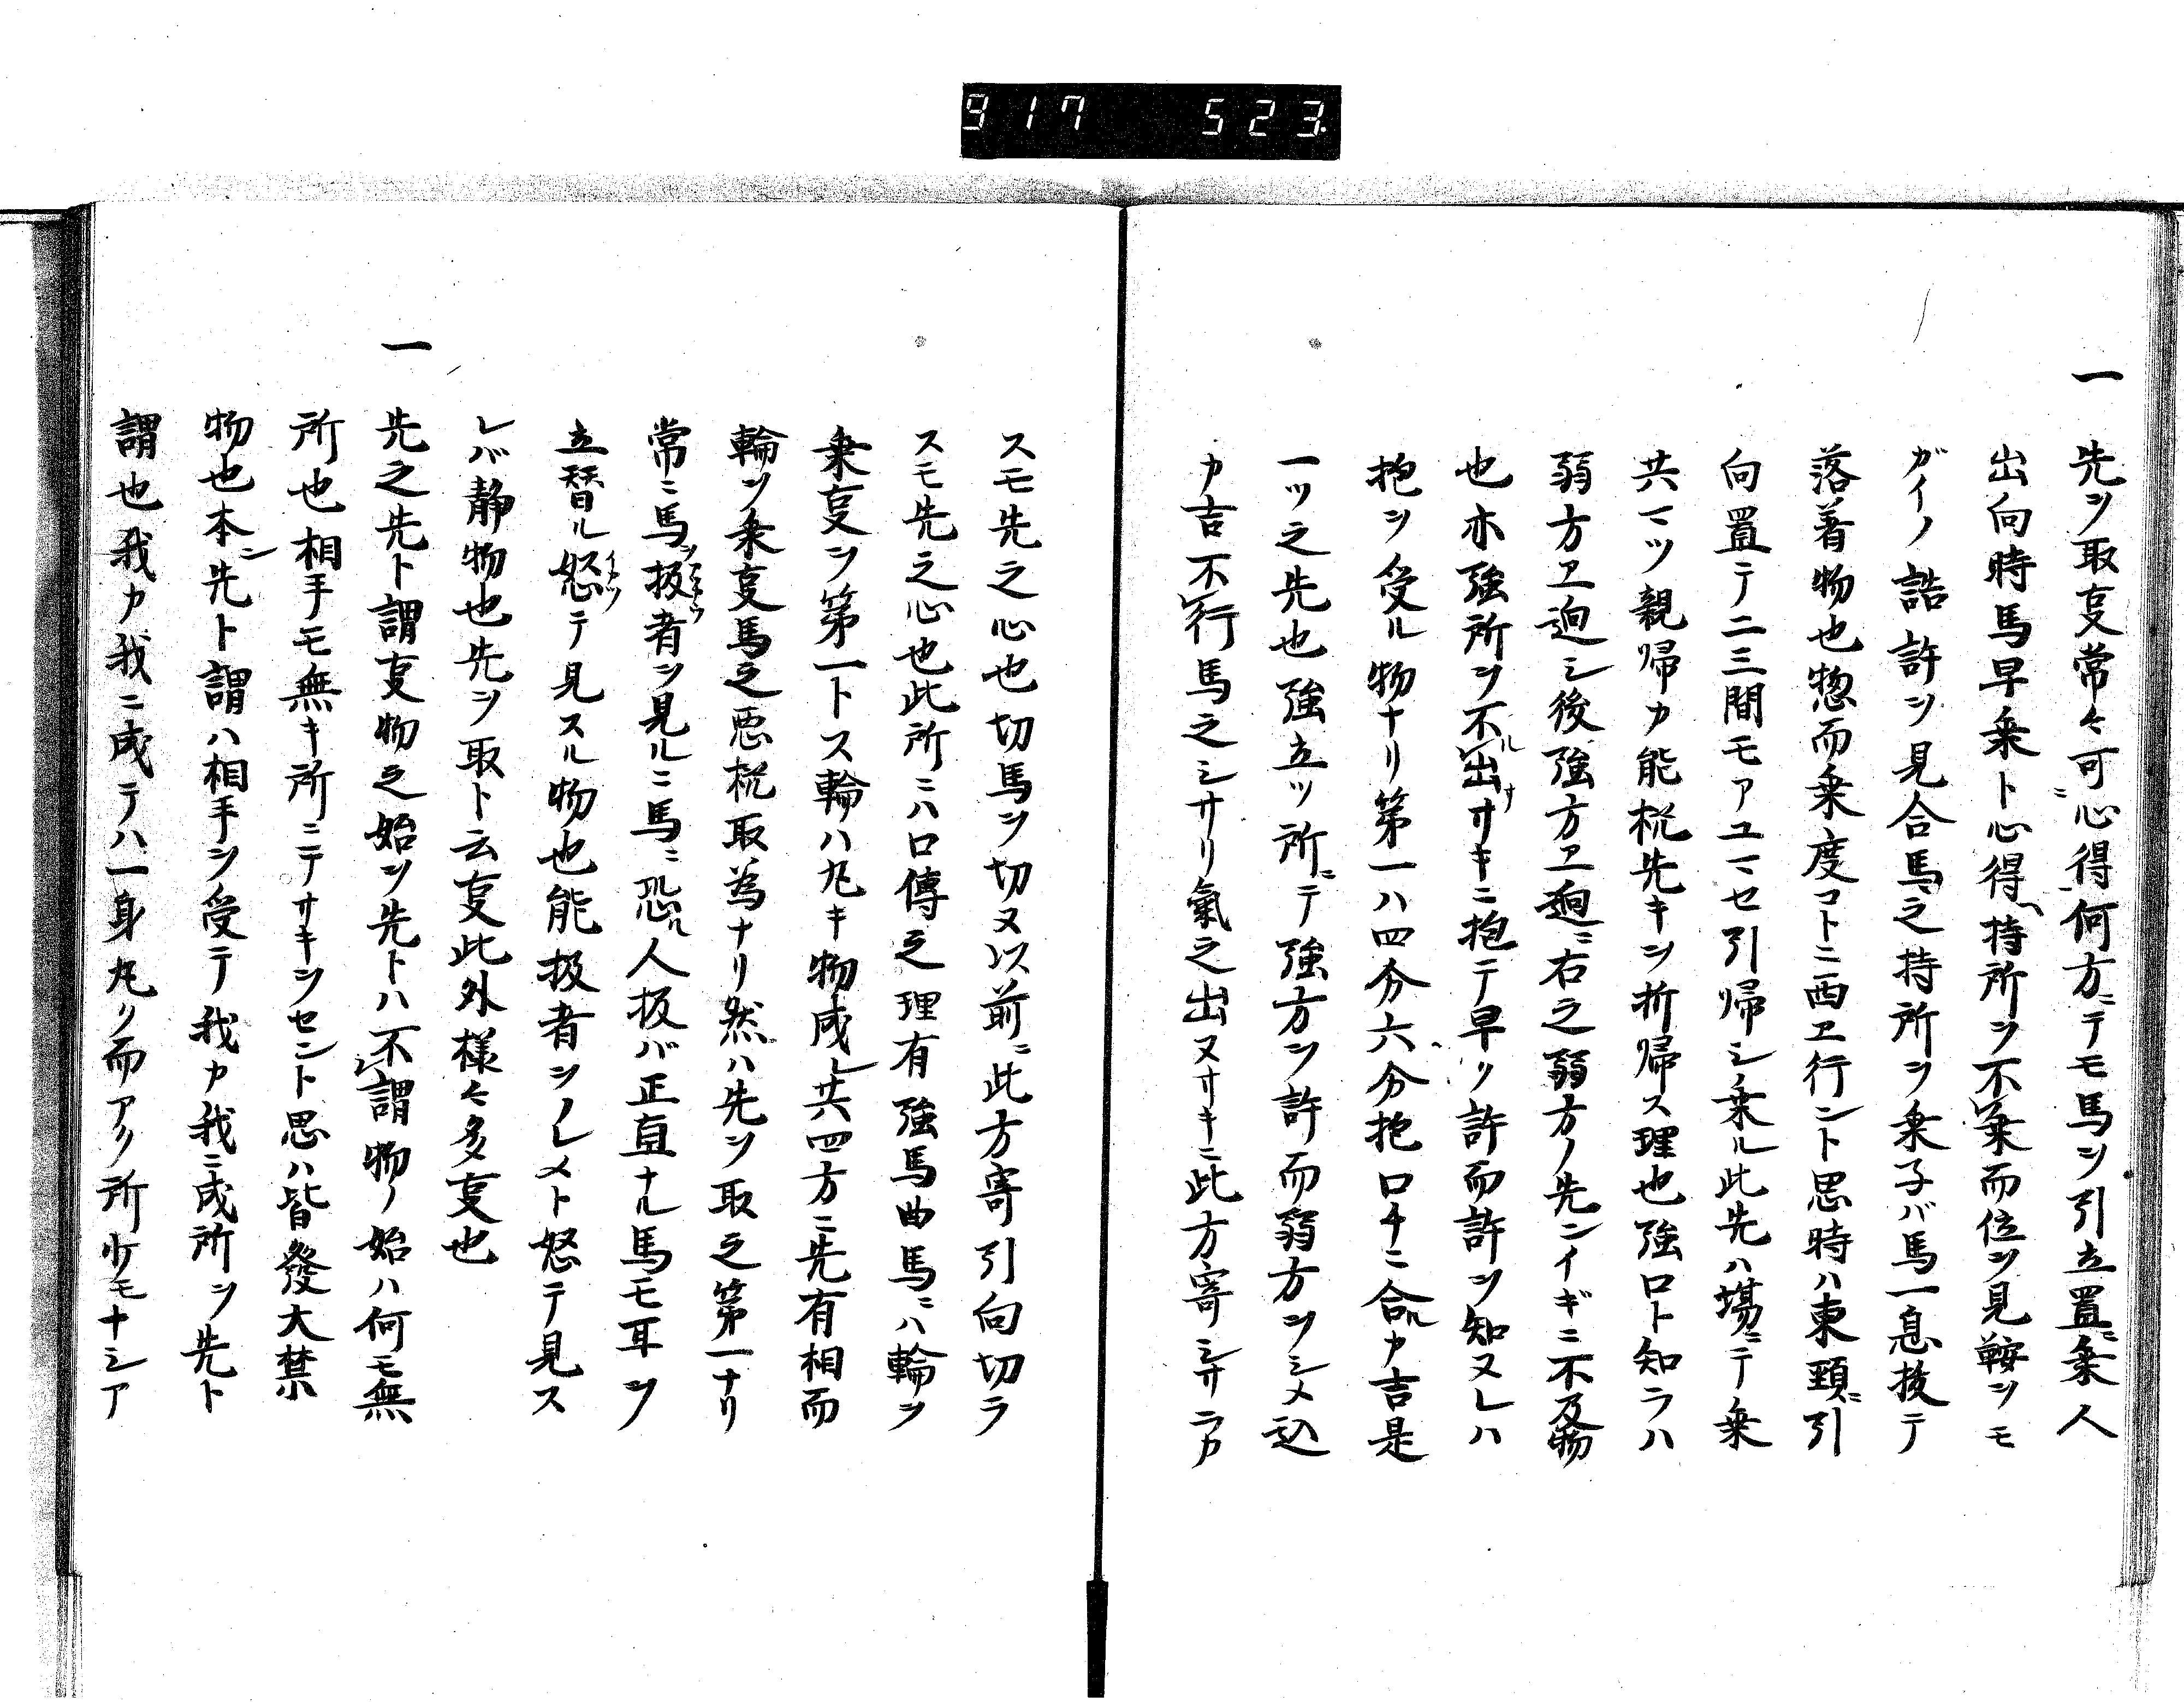 917 523.
一 先ヲ取亊常々可ニ心得何方ニテモ馬ヲ引立置ニ乗人
出向時馬早乗ト心得ヘ持所ヲ不レ乗而位ヲ見鞍ヲモ
ガイノ諸許ヲ見合馬之持所ヲ乗子バ馬一息抜テ
落着物也惣而乗度コトニ西ヱ行ント思時ハ東頚ニ引
向置テ二三間モアユマセ引帰シ乗ル此先ハ塲ニテ乗
共マツ親帰カ能梳先キヲ折帰ス理也強口ト知ラハ
弱方ヱ廻シ後強方ヱ廻ニ右之弱方ノ先ンイギニ不及物
也亦強所ヲ不ルレ出ササキニ抱テ早ク許而許ヲ知ヌレハ
抱ヲ受ル物ナリ第一ハ四分六分抱口チニ合ルカ吉是
一ツ之先也強立ツ所ニテ強方ヲ許而弱方ヲシメ込
カ吉不レ行馬之シサリ氣之出ヌサキニ此方寄シサラカ
スモ先之心也切馬ヲ切ヌ以前ニ此方寄引向切ラ
スモ先之心也此所ニハ口傳之理有強馬曲馬ニハ輪ヲ
乗亊ヲ第一トス輪ハ丸キ物成レ共四方ニ先有相而
輪ヲ乗亊馬之悪梳取為ナリ然ハ先ヲ取之第一ナリ
常ニ馬ヲ扱アツカウ者ヲ見ルニ馬ニ恐ル人扱バ正直ナル馬モ耳ヲ
立替ル怒イカツテ見スル物也能扱者ヲノレメト怒テ見ス
レバ静物也先ヲ取ト云亊此外様々多亊也
一 先之先ト謂亊物之始ヲ先トハ不レ謂ハ物ノ始ハ何モ無
所也相手モ無キ所ニテサキヲセント思ハ皆發大禁
物也本ン先ト謂ハ相手ヲ受テ我カ我ニ成所ヲ先ト
謂也我カ我ニ成テハ一身丸ク而アク所少モナシア